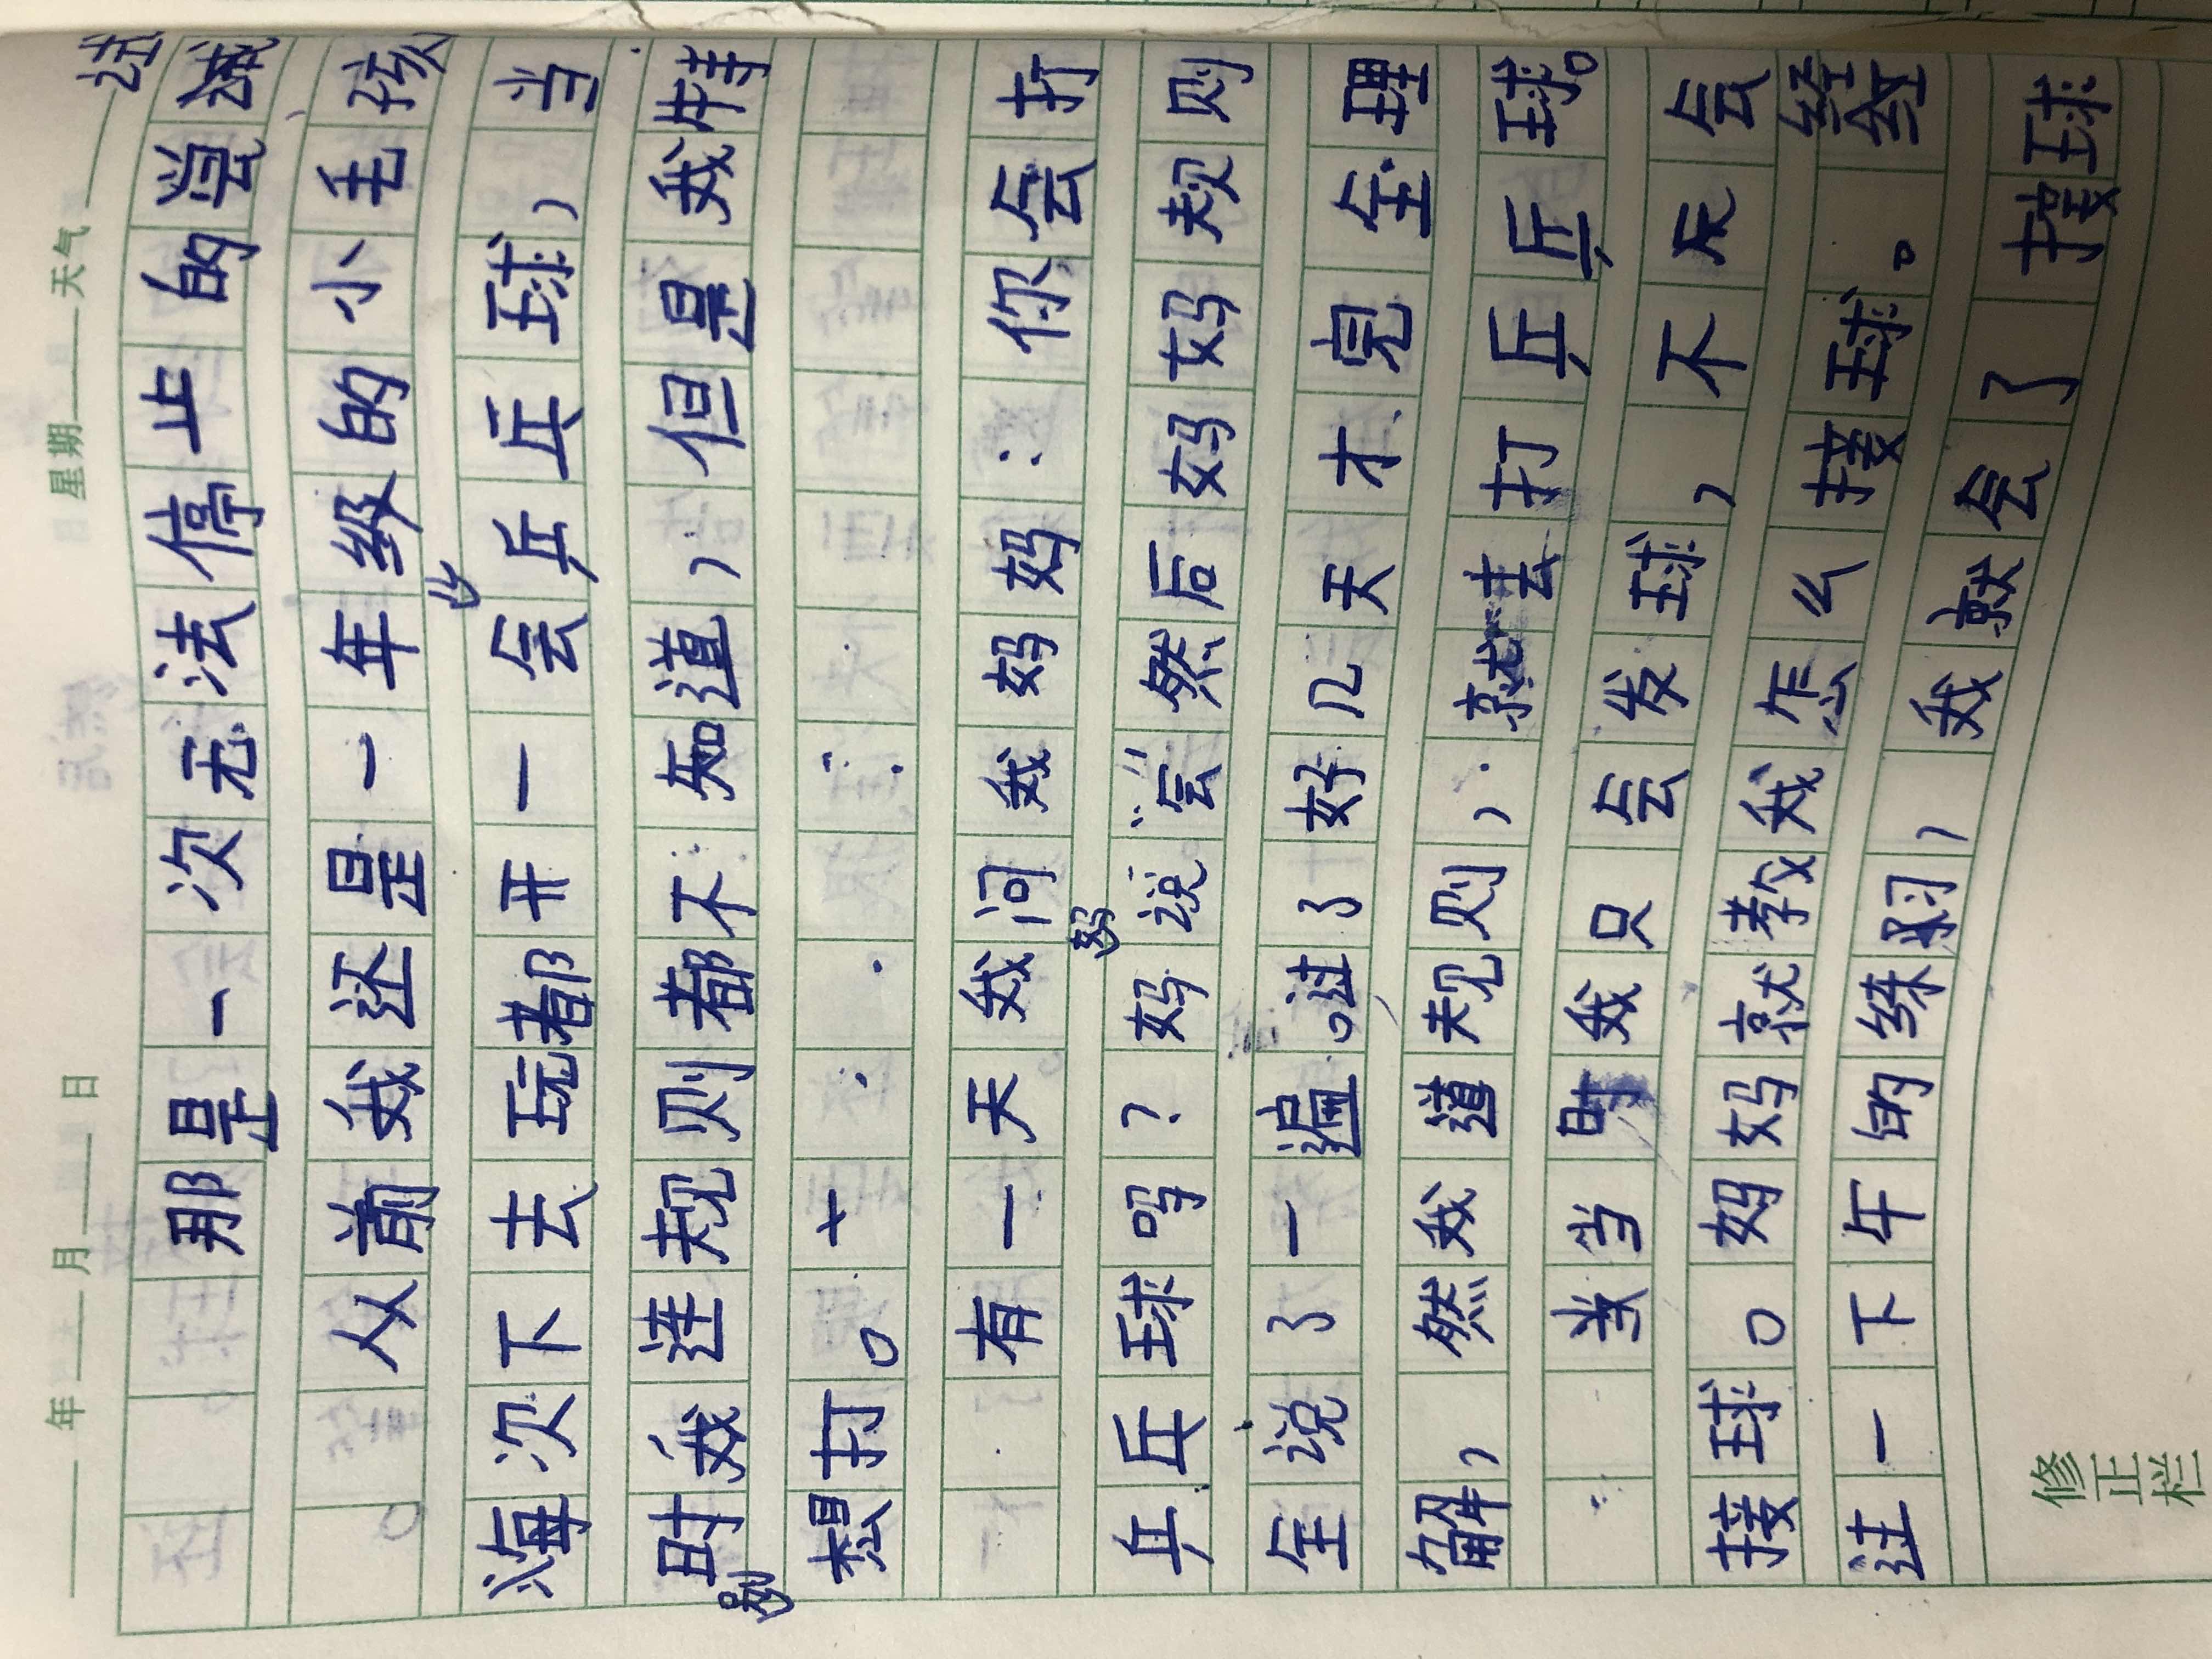 年 月 日 星期 天气
那是一次无法停止的尝试
从前我还是一年级的小毛孩
每次下去玩都开一会乒乓球，当
时我连规则都不知道，但是我特
别想打。
有一天我问我妈妈：你会打
乒乓球吗？妈妈说“会”然后妈妈规则
全说了一遍。过了好几天才完全理
解，然我道规则，就去打乒乓球。
当时我只会发球，不会
接球。妈妈就教我怎么接球。经
过一下午的练习，我就会了接球
修正栏